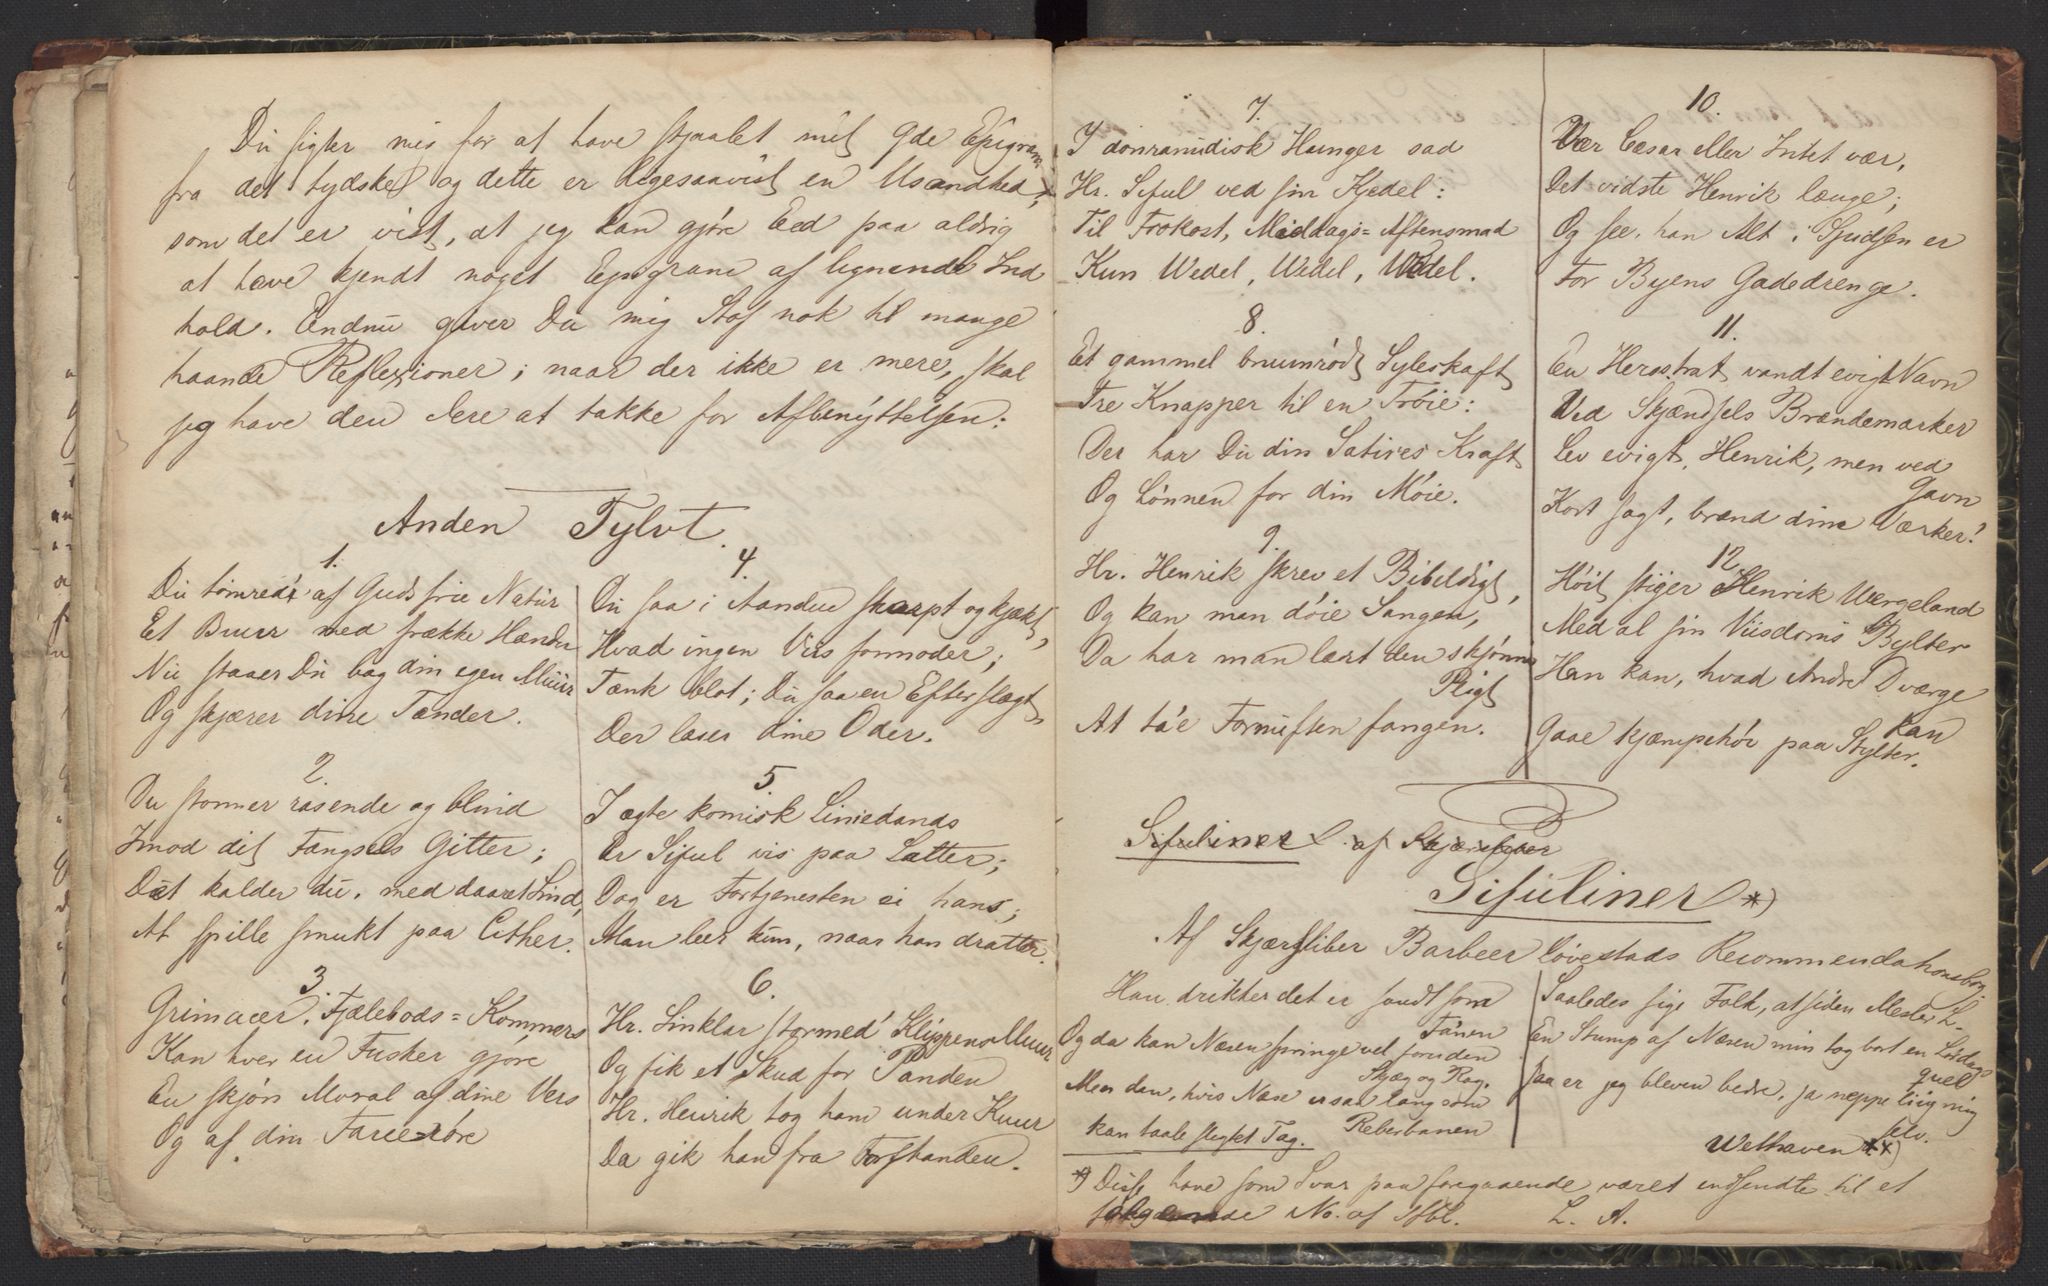 Du sigter mig for at have stjaalet mit 9de Epigram
fra det tydske og dette er ligesaavist en Usandhed,
som det er vist, at jeg kan gjøre Eed paa aldrig
at have kjendt noget Epigram af lignende Ind
hold. Endnu giver Du mig Stof nok til mange
haande Reflexioner; naar der ikke er mere, skal
jeg have den Ære at takke for Afbenyttelsen:
Anden Tylvt.
1.
Du tømred' af Guds frie Natur
Et Buur med frække Hænder
Nu staaer Du bag din egen Muur
Og skjærer dine Tænder.
2.
Du stormer rasende og blind
Imod dit Fængsels Gitter;
Det kalder du, med daaret Sind,
At spille smukt paa Cither.
3.
Grimacer, Fjælebods=Kommers
Kan hver en Fusker gjøre
En skjøn Moral af dine Vers
Og af din Farce røre
4.
Du saa i Aanden skarpt og kjækt,
Hvad ingen Viis formoder;
Tænk blot; Du saa en Efterslægt,
Der læser dine Oder.
5.
I ægte komisk Liniedands
Er Siful vis paa Latter;
Dog er Fortjenesten ei hans;
Man leer kun, naar han dratter.
6.
Hr. Sinklar stormed' Klippens Muur
Og fik et Skud for Panden
Hr. Henrik tog ham under Kuur
Da gik han fra Forstanden.
7.
I donramidisk Hunger sad
Hr. Siful ved sin Kjedel:
Til Frokost, Middags=Aftensmad
Kun Wedel, Wedel, Wedel.
8.
Et gammel bruunrødt Syleskaft
Tre Knapper til en Trøie:
Der har Du din Satires Kraft
Og Lønnen for din Møie.
9.
Hr. Henrik skrev et Bibeldigt,
Og kan man døie Sangen,
Da har man lært den skjønne
Pligt
At ta'e Fornuften fangen.
10.
Vær Cæsar eller Intet vær,
Det vidste Henrik længe;
Og see, han Alt i Spidsen er
For Byens Gadedrenge.
11.
En Herostrat vandt evigt Navn
Ved Skjændsels Brændemærker
Lev evigt, Henrik, men ved
Gavn
Kort sagt, brænd dine Værker!
12.
Høit stiger Henrik Wergeland
Med al sin Viisdoms Bylter
Han kan, hvad Andre Dværge
kan
Gaae kjæmpehøi paa Stylter.
Sifuliner af Skjærsliber
Sifuliner *)
Af Skjærsliber Barbeer Løvestads Recommendationsbog;
Han drikker det er sandt som
Fanen
Og da kan Næsen springe vel foruden
Skjæg og Rag.
Men den, hvis Næse er saa lang som
Reberbanen
kan taale sligt Tag.
Saaledes sige Folk, at siden Mester L-
En Stump af Næsen min tog bort en Lørdags
quel
Saa er jeg bleven bedre, ja neppe liig mig
selv.
Welhaven **)
*) Disse have som Svar paa foregaaende været indsendte til et
No. af Mbl. L. A.